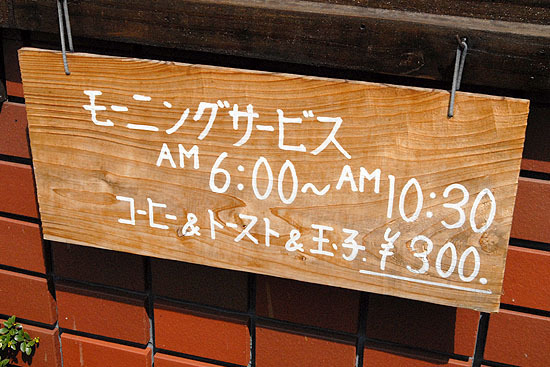 モーニングサービス
AM 6:00~AM 10:30
コーヒー&トースト&玉子 ¥300.